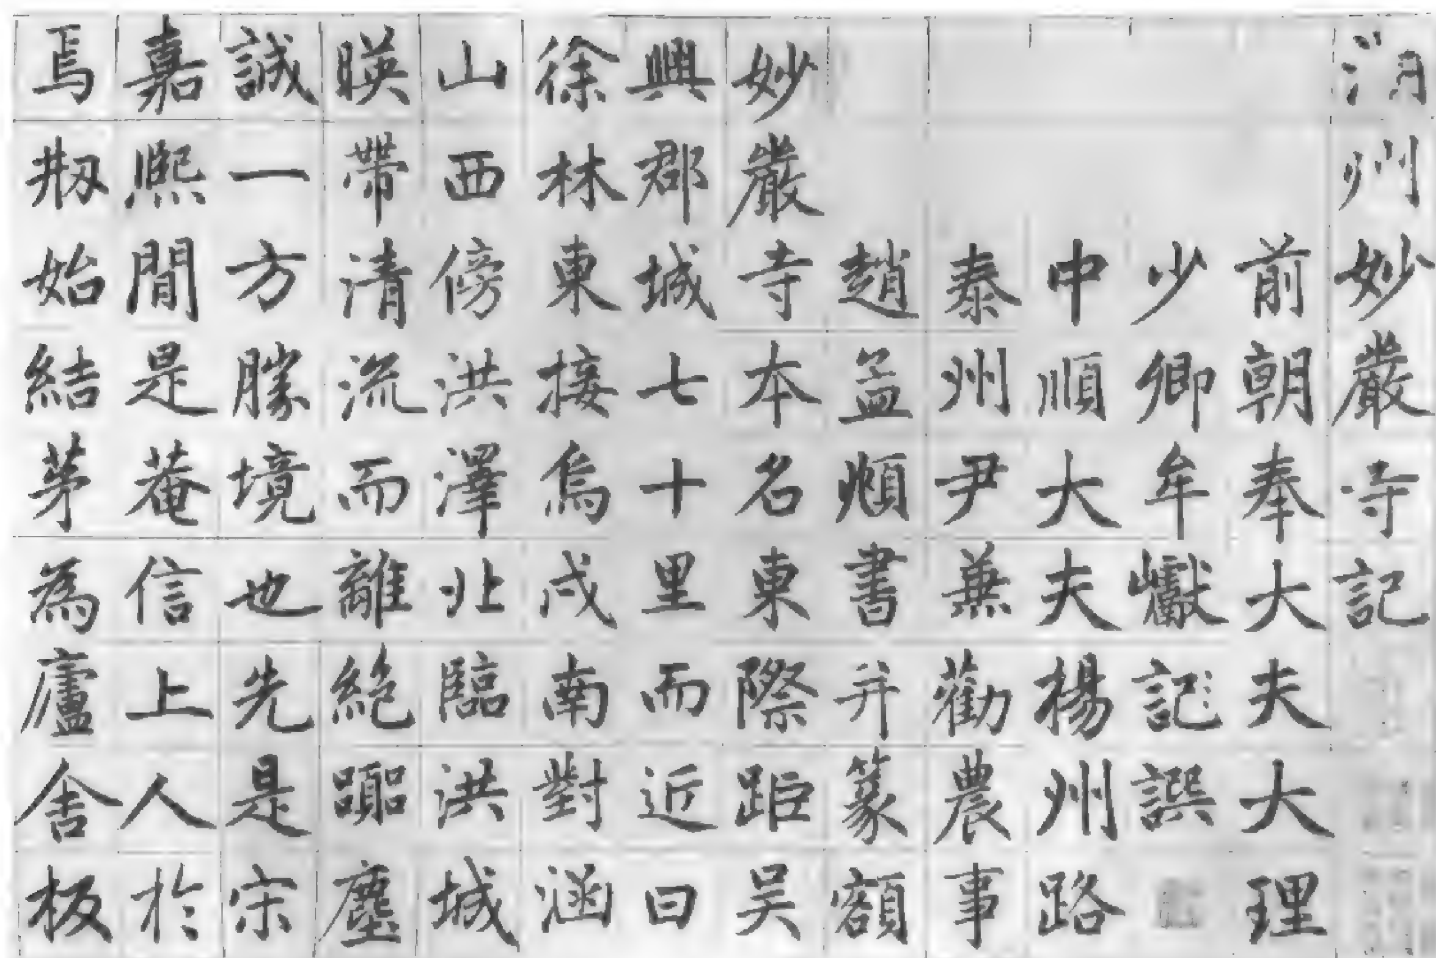 湖州妙嚴寺記
前朝奉大夫大理
少卿牟巘記譔
中順大夫楊州路
泰州尹兼勸農事
趙孟頫書并篆額
妙嚴寺本名東際距吴
興郡城七十里而近曰
徐林東接烏戍南對涵
山西傍洪澤北臨洪城
暎帶清流而離絶囂塵
誠一方勝境也先是宋
嘉熙間是菴信上人於
焉刱始結茅為廬舍板